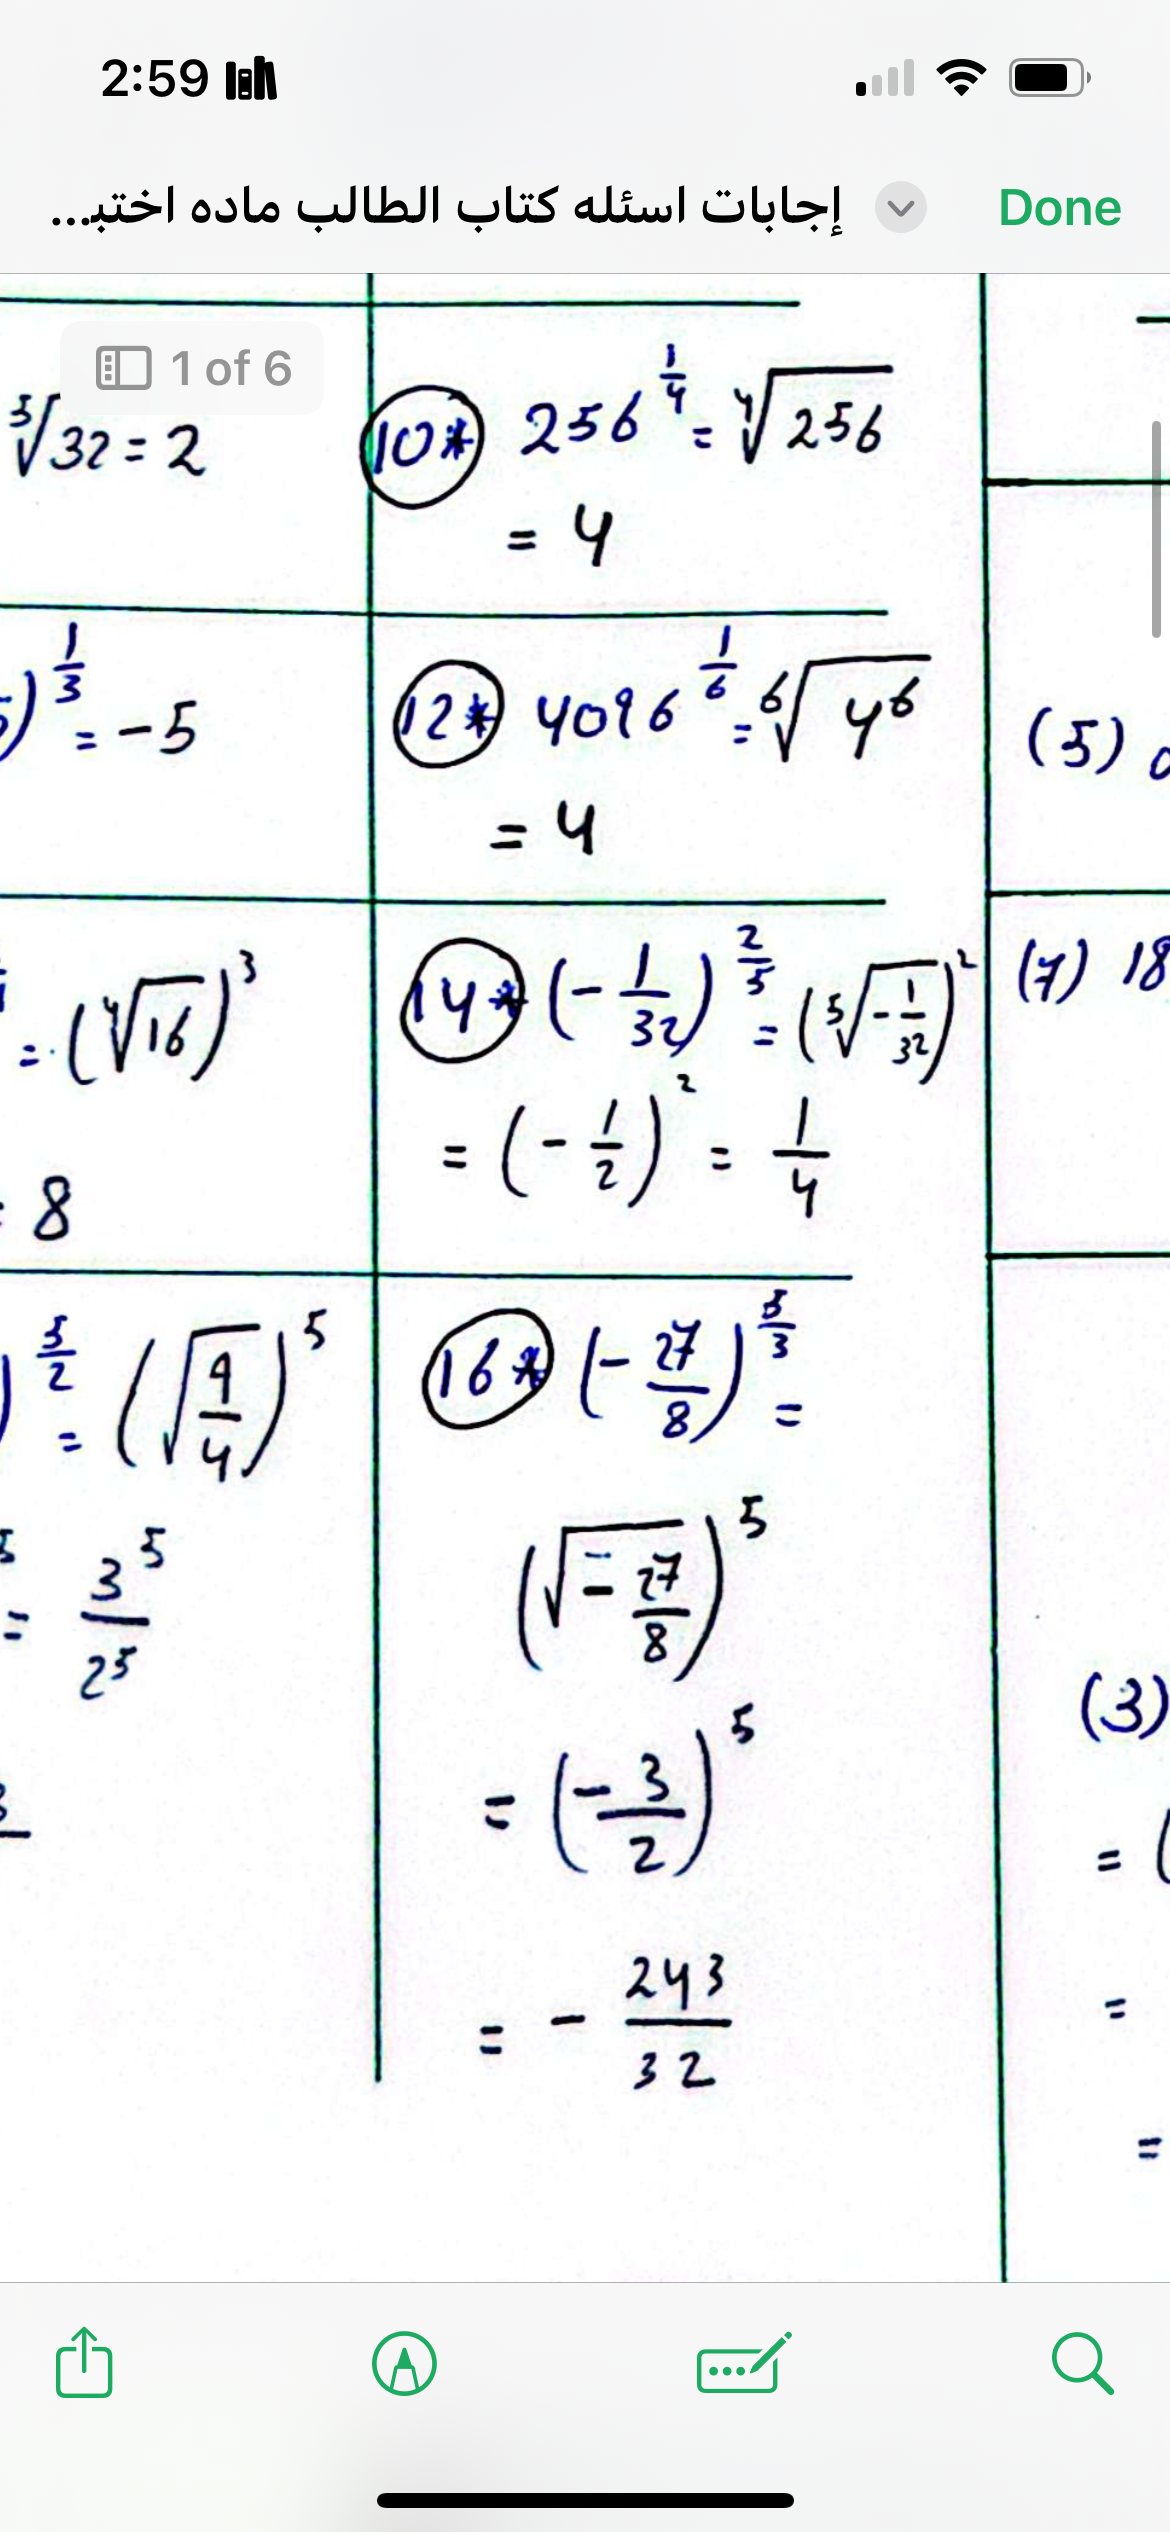 2:59
إجابات اسئله كتاب الطالب ماده اختبـ...
Done
1 of 6
⁵√32 = 2
10* 256^(1/4) = ⁴√256
= 4
)^(1/3) = -5
12* 4096^(1/6) = ⁶√4⁶
= 4
(5)
= (⁴√16)³
= 8
14* (-1/32)^(2/5) = (⁵√-1/32)²
= (-1/2)² = 1/4
(7) 18
)^(5/2) = (√9/4)⁵
= 3⁵/2⁵
16* (-27/8)^(5/3) =
(√-27/8)⁵
= (-3/2)⁵
= -243/32
(3)
= (
=
=